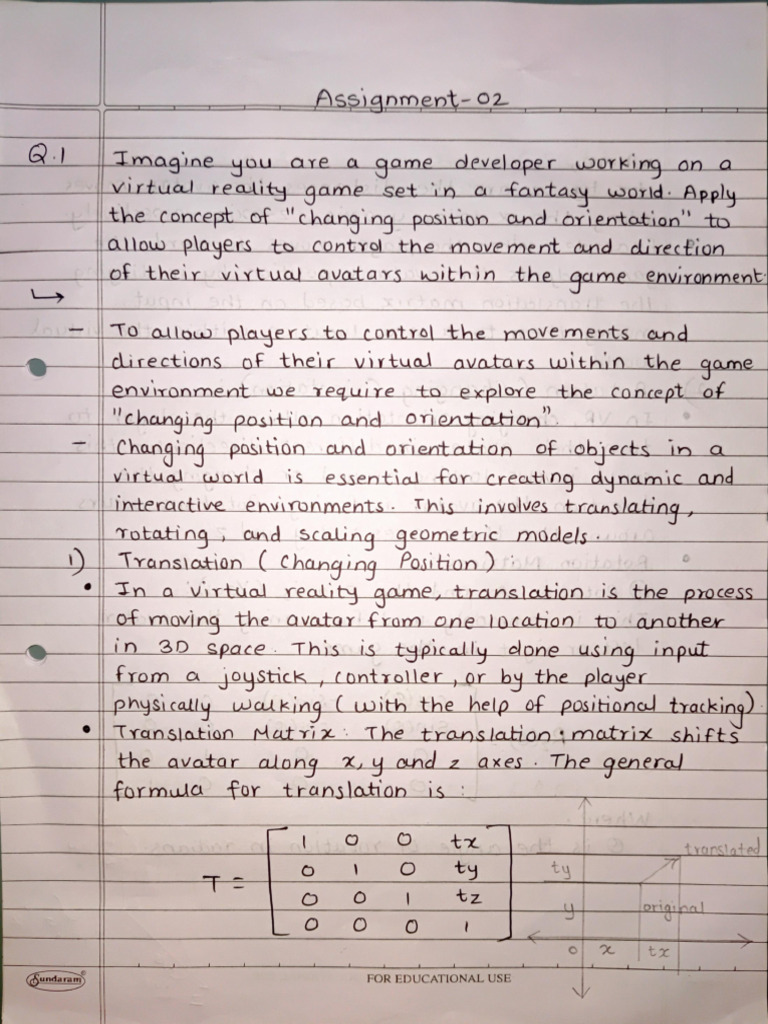 Assignment-02
Q.1 Imagine you are a game developer working on a
virtual reality game set in a fantasy world. Apply
the concept of "changing position and orientation" to
allow players to control the movement and direction
of their virtual avatars within the game environment.
- To allow players to control the movements and
directions of their virtual avatars within the game
environment we require to explore the concept of
"changing position and orientation".
- Changing position and orientation of objects in a
virtual world is essential for creating dynamic and
interactive environments. This involves translating,
rotating, and scaling geometric models.
1) Translation (Changing Position)
• In a virtual reality game, translation is the process
of moving the avatar from one location to another
in 3D space. This is typically done using input
from a joystick, controller, or by the player
physically walking (with the help of positional tracking).
• Translation Matrix: The translation matrix shifts
the avatar along x, y and z axes. The general
formula for translation is :
T =
1 0 0 tx
0 1 0 ty
0 0 1 tz
0 0 0 1
translated
ty
y original
0 x tx
Sundaram
FOR EDUCATIONAL USE